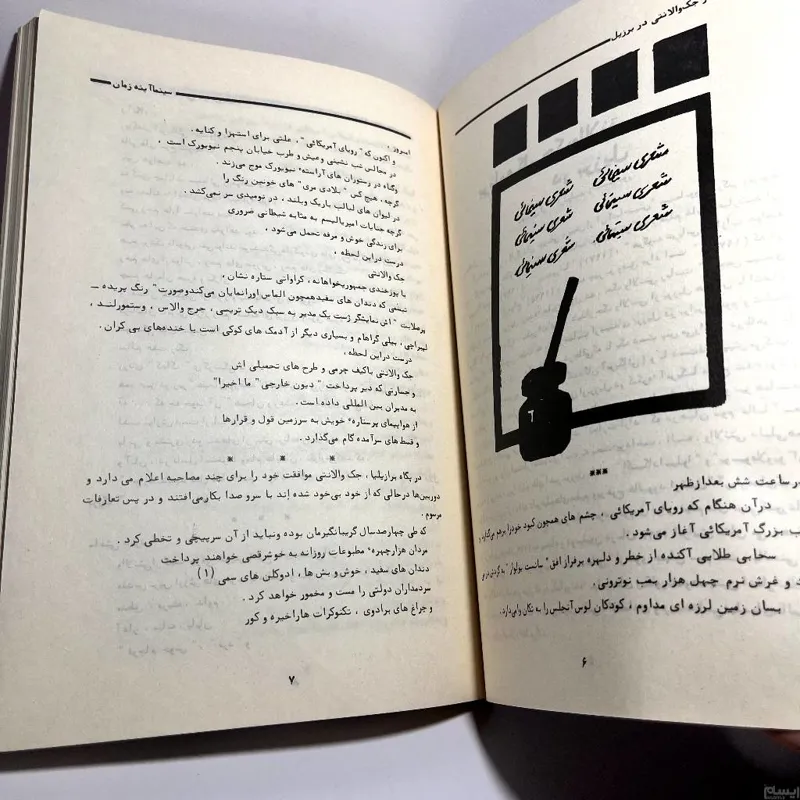 جک‌والانتی در برزیل
شعری سینمائی شعری سینمائی
شعری سینمائی شعری سینمائی
شعری سینمائی شعری سینمائی
***
در ساعت شش بعدازظهر
درآن هنگام که رویای آمریکائی ، چشم های همچون کبود خودرا برهم می‌گذارد، و
ب بزرگ آمریکائی آغاز می‌شود .
سحابی طلایی آکنده از خطر و دلهره برفراز افق " سانست بولوار "
د و غرش نرم چهل هزار بمب نوترونی .
بسان زمین لرزه ای مداوم ، کودکان لوس‌آنجلس را به تکان وامی‌دارد .
۶
سینما آینه زمان
امروز ،
و اکنون که " رویای آمریکائی " ، علتی برای استهزا و کنایه .
در مجالس شب نشینی وعیش و طرب خیابان پنجم نیویورک است ،
وگناه در رستوران های آراسته نیویورک موج می‌زند .
گرچه ، هیچ کس " بلادی مری " های خونین رنگ را
در لیوان های لبالب باریک وبلند ، در نومیدی سر نمی‌کشد .
گرچه جنایات امپریالیسم به مثابه شیطانی ضروری
برای زندگی خوش و مرفه تحمل می‌شود ،
درست دراین لحظه ،
جک والانتی
با پوزخندی جمهوریخواهانه ، کراواتی ستاره نشان ،
تبسمی که دندان های سفیدهمچون الماس اورانمایان می‌کندوصورت " رنگ پریده —
پرصلابت " اش نمایشگر ژست یک مدیر به سبک دیک تریسی ، جرج والاس ، وستمورلند ،
لیبراچی ، بیلی گراهام و بسیاری دیگر از آدمک های کوکی است با خنده‌های بی کران .
درست دراین لحظه ،
جک والانتی باکیف چرمی و طرح های تحمیلی اش
و خسارتی که دیر پرداخت " دیون خارجی " ما اخیرا"
به مدیران بین المللی داده است .
از هواپیمای پرستاره خویش به سرزمین قول و قرارها
و قسط های سرآمده گام می‌گذارد .
* * *
در پگاه برازیلیا ، جک والانتی موافقت خود را برای چند مصاحبه اعلام می دارد و
دوربین‌ها درحالی که از خود بی‌خود شده اند با سرو صدا بکارمی‌افتند و در پس تعارفات
مرسوم .
که طی چهارصدسال گریبانگیرمان بوده ونباید از آن سرپیچی و تخطی کرد .
مردان هزارچهره مطبوعات روزانه به خوشرقصی خواهند پرداخت
دندان های سفید ، خوش و بش ها ، ادوکلن های سمی (۱)
سردمداران دولتی را مست و مخمور خواهد کرد .
و چراغ های پرادوی ، تکنوکرات هاراخیره و کور
۷
ایسام